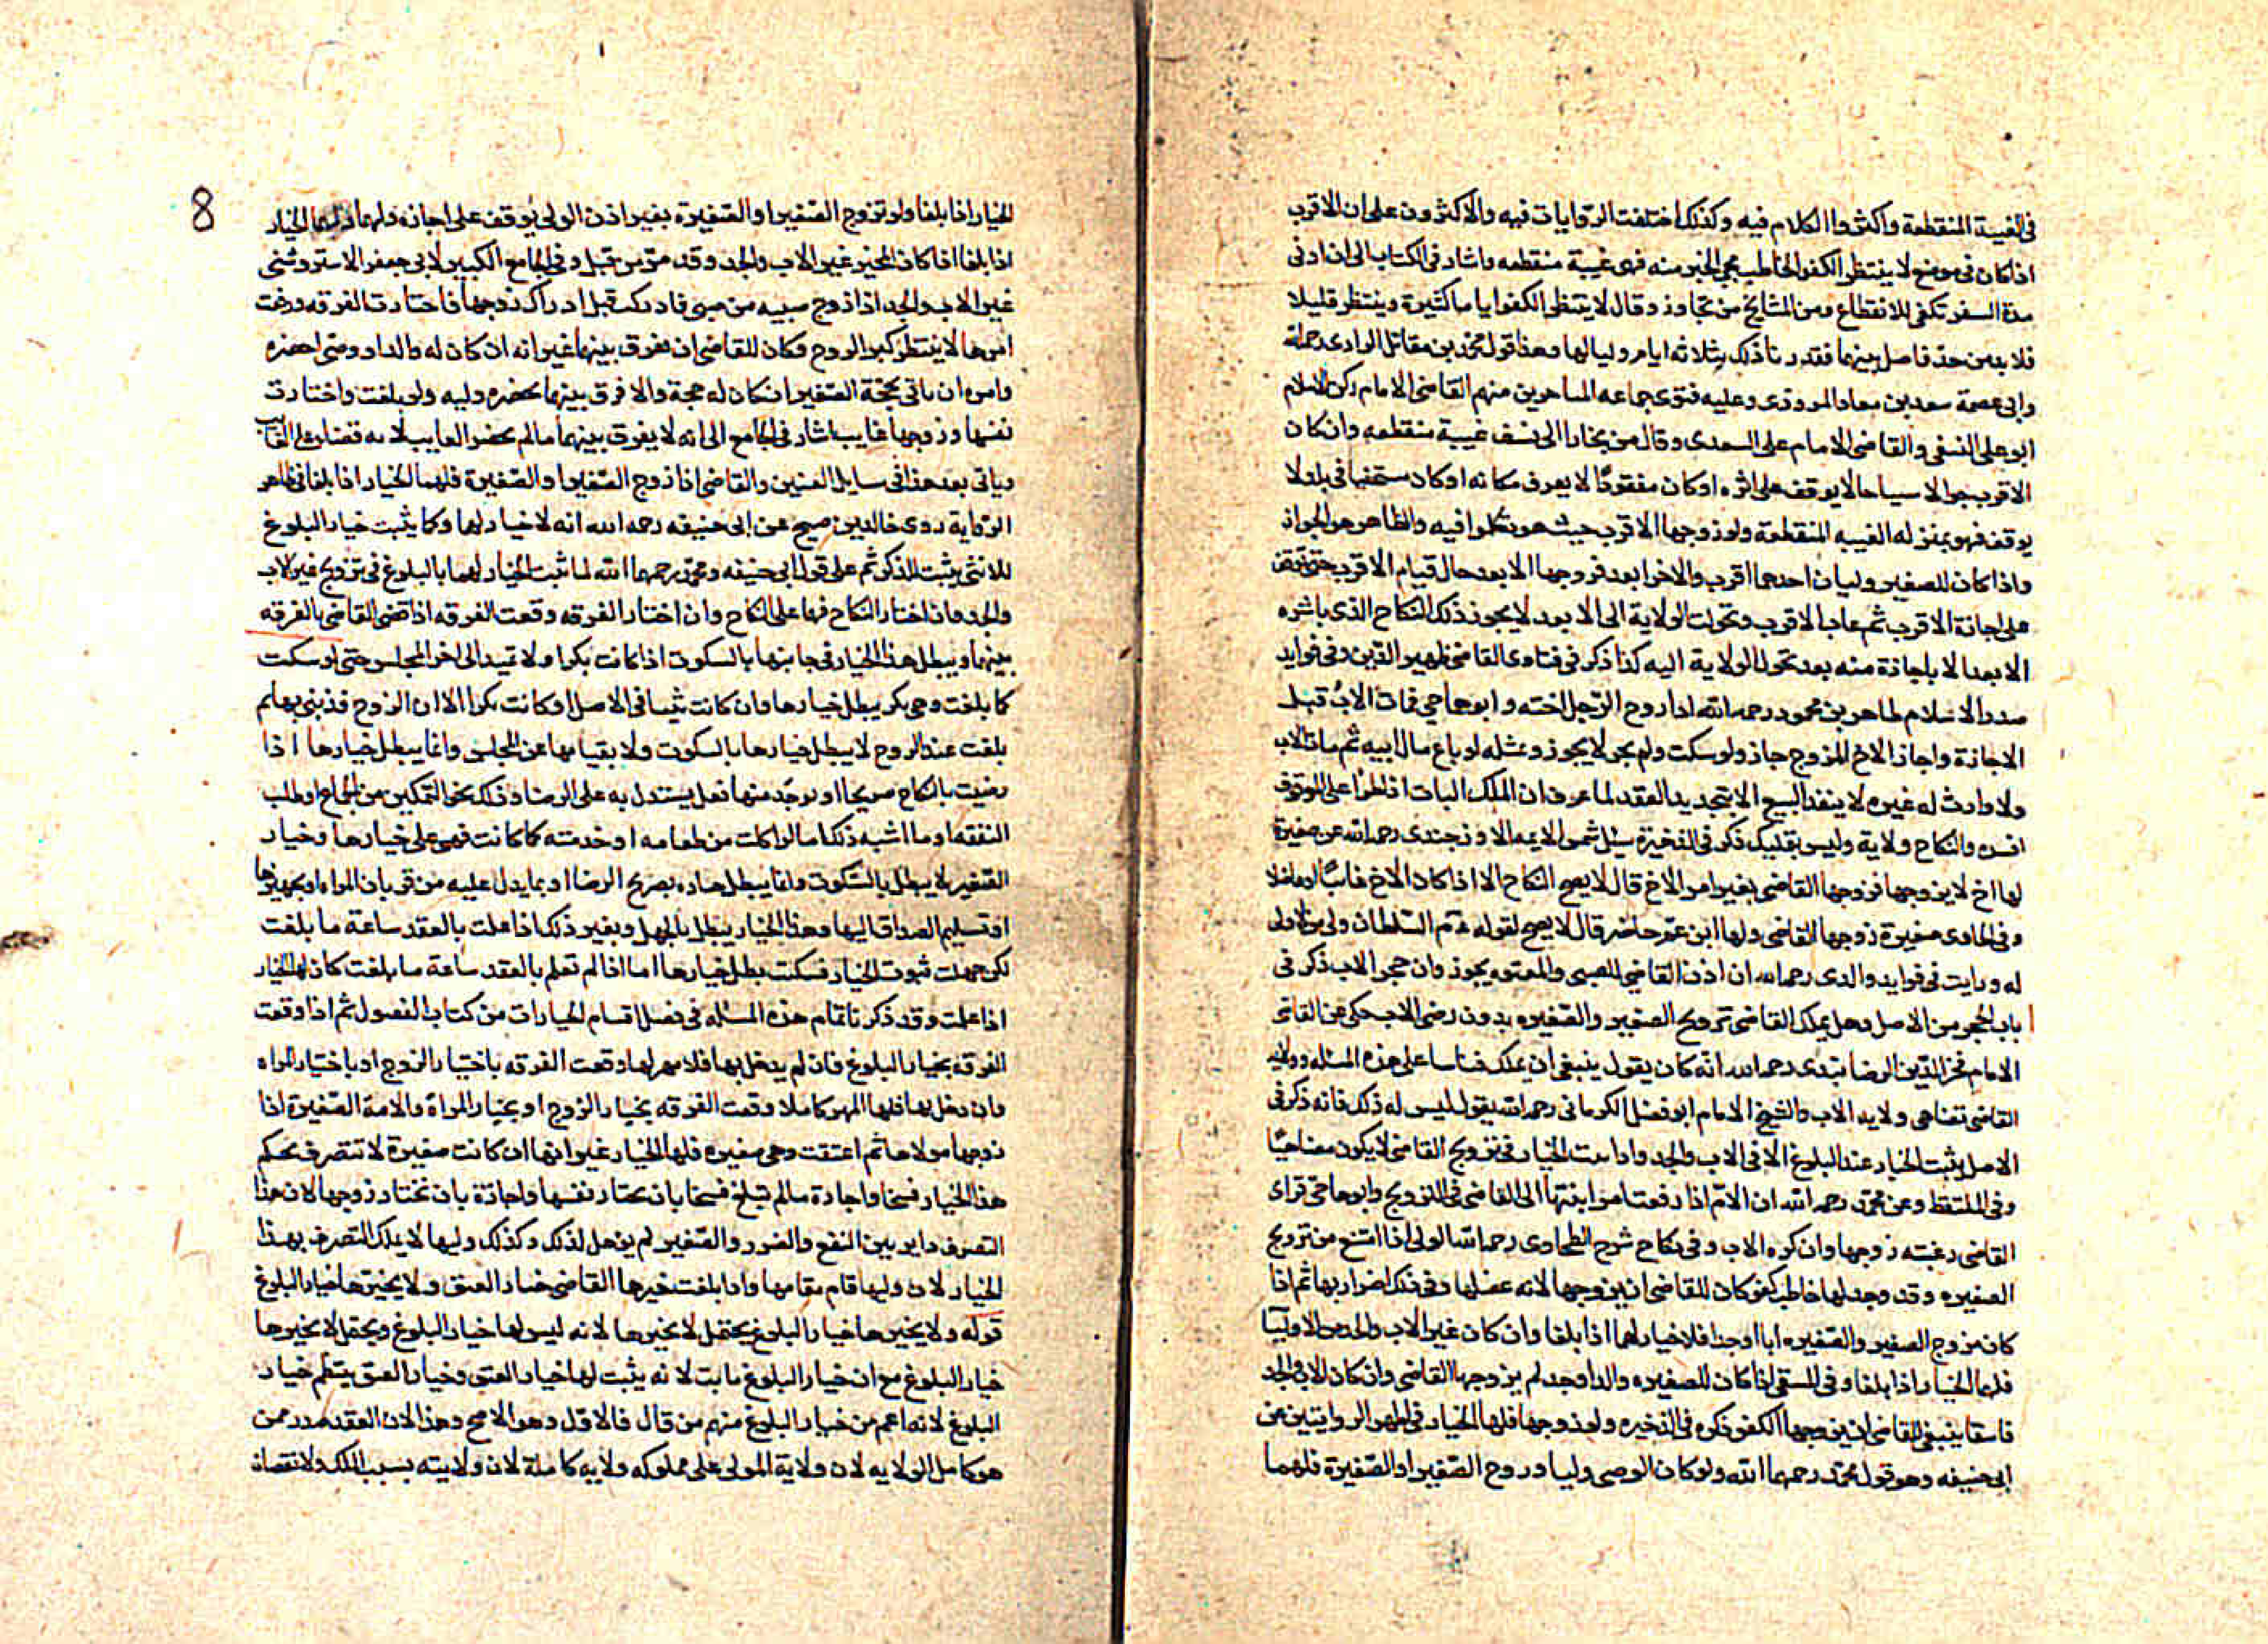 في الغيبة المنقطعة واكثروا الكلام فيه وكذلك اختلفت الروايات فيه والاكثرون على ان الاقرب
اذا كان في موضع لا ينتظر الكفو الخاطب مجي الخبر منه فهي غيبة منقطعه واشار في الكتاب الى ان ادنى
مدة السفر تكفي للانقطاع ومن المشايخ من تجاوز وقال لا ينتظر الكفو اياما كثيرة وينتظر قليلا
فلا بد من حد فاصل بينهما فقدرنا ذلك بثلاثه ايام ولياليها وهذا قول محمد بن مقاتل الرازى رحمه الله
وابى عصمة سعد بن معاد المروزى وعليه فتوى جماعه المتاخرين منهم القاضى الامام ركن الاسلام
ابو على النسفى والقاضى الامام على السعدى وقال من بخارا الى نسف غيبة منقطعه وان كان
الاقرب جوالا سياحا لا يوقف على اثره او كان مفقودًا لا يعرف مكانه او كان مستخفيا في بلد لا
يوقف فهو بمنزله الغيبه المنقطعة ولو زوجها الاقرب حيث هو تكلموا فيه والظاهر هو الجواز
واذا كان للصغير وليان احدهما اقرب والاخر ابعد فزوجها الابعد حال قيام الاقرب حتى توقف
على اجازة الاقرب ثم غاب الاقرب وتحولت الولاية الى الابعد لا يجوز ذلك النكاح الذى باشره
الابعد الا باجازة منه بعد تحول الولاية اليه كذا ذكر في فتاوى القاضى ظهير الدين وفي فوايد
صدر الاسلام طاهر بن محمود رحمه الله اذا زوج الرجل اخته وابوها حي فمات الاب قبل
الاجازة واجاز الاخ المزوج جاز ولو سكت ولم يجز لا يجوز ومثله لو باع مال ابيه ثم مات الاب
ولا وارث له غيره لا ينفذ البيع الا بتجديد العقد لما عرف ان الملك البات اذا طرا على الموقوف
افسده والنكاح ولاية وليس بتمليك ذكر في الذخيرة سئل شمس الايمه الاوزجندى رحمه الله عن صغيرة
لها اخ لا يزوجها فزوجها القاضى بغير امر الاخ قال لا يصح النكاح الا اذا كان الاخ غائبًا او عاضلا
وفي الحاوى صغيرة زوجها القاضى ولها ابن عم حاضر قال لا يصح لقوله عم السلطان ولى من لا ولى
له ورايت في فوايد والدى رحمه الله ان اذن القاضى للصبى والمعتوه يجوز وان حجر الاب ذكر في
باب الحجر من الاصل وهل يملك القاضى تزويج الصغير والصغيره بدون رضى الاب حكى عن القاضى
الامام فخر الدين رحمه الله انه كان يقول ينبغى ان يملك قياسا على هذه المسئله وولايه
القاضى تضاهى ولايه الاب والشيخ الامام ابو فضل الكرمانى رحمه الله يقول ليس له ذلك فانه ذكر في
الاصل يثبت الخيار عند البلوغ الا في الاب والجد واذا ثبت الخيار في تزويج القاضى لا يكون مضاهيًا
وفي الملتقط وعن محمد رحمه الله ان الام اذا رفعت امر ابنتها الى القاضى في التزويج وابوها حي فراى
القاضى رغبته زوجها وان كره الاب وفي نكاح شرح الطحاوى رحمه الله الولى اذا امتنع من تزويج
الصغيره وقد وجد لها خاطب كفو كان للقاضى ان يزوجها لانه عضلها وفي ذلك اضرار بها ثم اذا
كان مزوج الصغير والصغيره ابا او جدا فلا خيار لهما اذا بلغا وان كان غير الاب والجد من الاوليا
فلهما الخيار اذا بلغا وفي المنتقى اذا كان للصغيره والد او جد لم يزوجها القاضى وان كان الاب والجد
فاسقا ينبغى للقاضى ان يزوجها الكفو ذكره في الذخيره ولو زوجها فلها الخيار في اظهر الروايتين عن
ابى حنيفه وهو قول محمد رحمهما الله ولو كان الوصى وليا وزوج الصغير او الصغيرة فلهما
8
الخيار اذا بلغا ولو تزوج الصغير او الصغيرة بغير اذن الولى يوقف على اجازته ولهما الخيار
اذا بلغا اذا كان المجيز غير الاب والجد وقد مر من قبل وفي الجامع الكبير لابى جعفر الاستروشنى
غير الاب والجد اذا زوج صبيه من صبى فادركت قبل ادراك زوجها فاختارت الفرقه ورفعت
امرها لا ينتظر كبر الزوج وكان للقاضى ان يفرق بينهما غير انه ان كان له والد او وصى احضره
وامره ان ياتى بحجة الصغير ان كان له حجة والا فرق بينهما بحضرة وليه ولو بلغت واختارت
نفسها وزوجها غايب اشار في الجامع الى انه لا يفرق بينهما ما لم يحضر الغايب لانه قضا على الغايب
وياتى بعد هذا في مسايل العنين والقاضى اذا زوج الصغير او الصغيرة فلهما الخيار اذا بلغا في ظاهر
الرواية روى خالد بن صبيح عن ابى حنيفه رحمه الله انه لا خيار لهما وكما يثبت خيار البلوغ
للانثى يثبت للذكر ثم على قول ابى حنيفه ومحمد رحمهما الله لما ثبت الخيار لهما بالبلوغ في تزويج غير الاب
والجد فان اختار النكاح فهما على النكاح وان اختار الفرقه وقعت الفرقه اذا قضى القاضى بالفرقه
بينهما ويبطل هذا الخيار في جانبها بالسكوت اذا كانت بكرا ولا تمتد الى اخر المجلس حتى لو سكت
كما بلغت وهي بكر يبطل خيارها وان كانت ثيبا في الاصل او كانت بكرا الا ان الزوج قد بنى بها ثم
بلغت عند الزوج لا يبطل خيارها بالسكوت ولا بقيامها عن المجلس وانما يبطل خيارها اذا
رضيت بالنكاح صريحا او يوجد منها فعل يستدل به على الرضا وذلك نحو التمكين من الجماع او طلب
النفقه او ما اشبه ذلك اما لو اكلت من طعامه او خدمته كما كانت فهي على خيارها وخيار
الصغير لا يبطل بالسكوت وانما يبطل خياره بصريح الرضا او بما يدل عليه من قربان المراه او تجهيزها
او تسليم الصداق اليها وهذا الخيار يبطل بالجهل وبغير ذلك اذا علمت بالعقد ساعة ما بلغت
لكن جهلت ثبوت الخيار فسكت بطل خيارها اما اذا لم تعلم بالعقد ساعة ما بلغت كان لها الخيار
اذا علمت وقد ذكرنا تمام هذه المسئله في فصل اقسام الخيارات من كتاب الفصول ثم اذا وقعت
الفرقه بخيار البلوغ فان لم يدخل بها فلا مهر لها وقعت الفرقه باختيار الزوج او باختيار المراه
وان دخل بها فلها المهر كاملا وقعت الفرقه بخيار الزوج او بخيار المراة والامة الصغيرة اذا
زوجها مولاها ثم اعتقت وهي صغيره فلها الخيار غير انها ان كانت صغيرة لا تتصرف بحكم
هذا الخيار فسخا واجازة ما لم تبلغ فسخا بان تختار نفسها واجازة بان تختار زوجها لان هذا
التصرف داير بين النفع والضرر والصغير لم يوهل لذلك وكذلك وليها لا يملك التصرف بهذا
الخيار لان وليها قام مقامها واذا بلغت خيرها القاضى خيار العتق ولا يخيرها خيار البلوغ
قوله ولا يخيرها خيار البلوغ يحتمل لا يخيرها لانه ليس لها خيار البلوغ ويحتمل لا يخيرها
خيار البلوغ مع ان خيار البلوغ ثابت لانه يثبت لها خيار العتق وخيار العتق ينتظم خيار
البلوغ لانه اعم من خيار البلوغ منهم من قال فالاول وهو الاصح وهذا لان العقد صدر ممن
هو كامل الولايه لان ولاية المولى على مملوكه ولايه كاملة لان ولايته بسبب الملك ولا نقصان